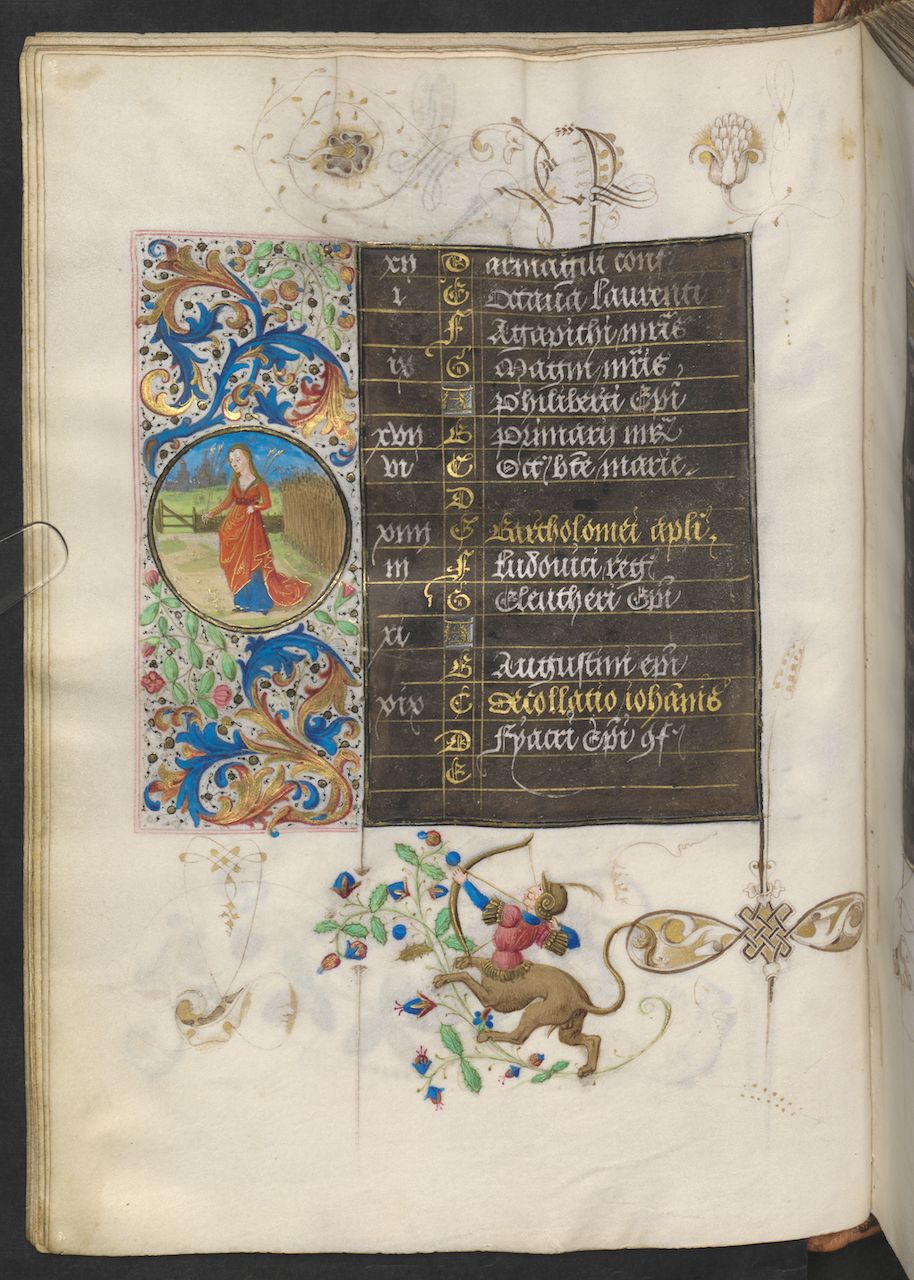 xij D armagili conf
i E Octaua laurenti
F Agapithi mris
ix G Magni mris
A philiberti Epi
xvij B primarij mr
vi C Oct bte marie
D
xiiij E Bartholomei apli
iij F ludouici reg
G Eleutheri Epi
xi A
B Augustini epi
xix C Decollatio iohanis
D Fyacri Epi gf
E